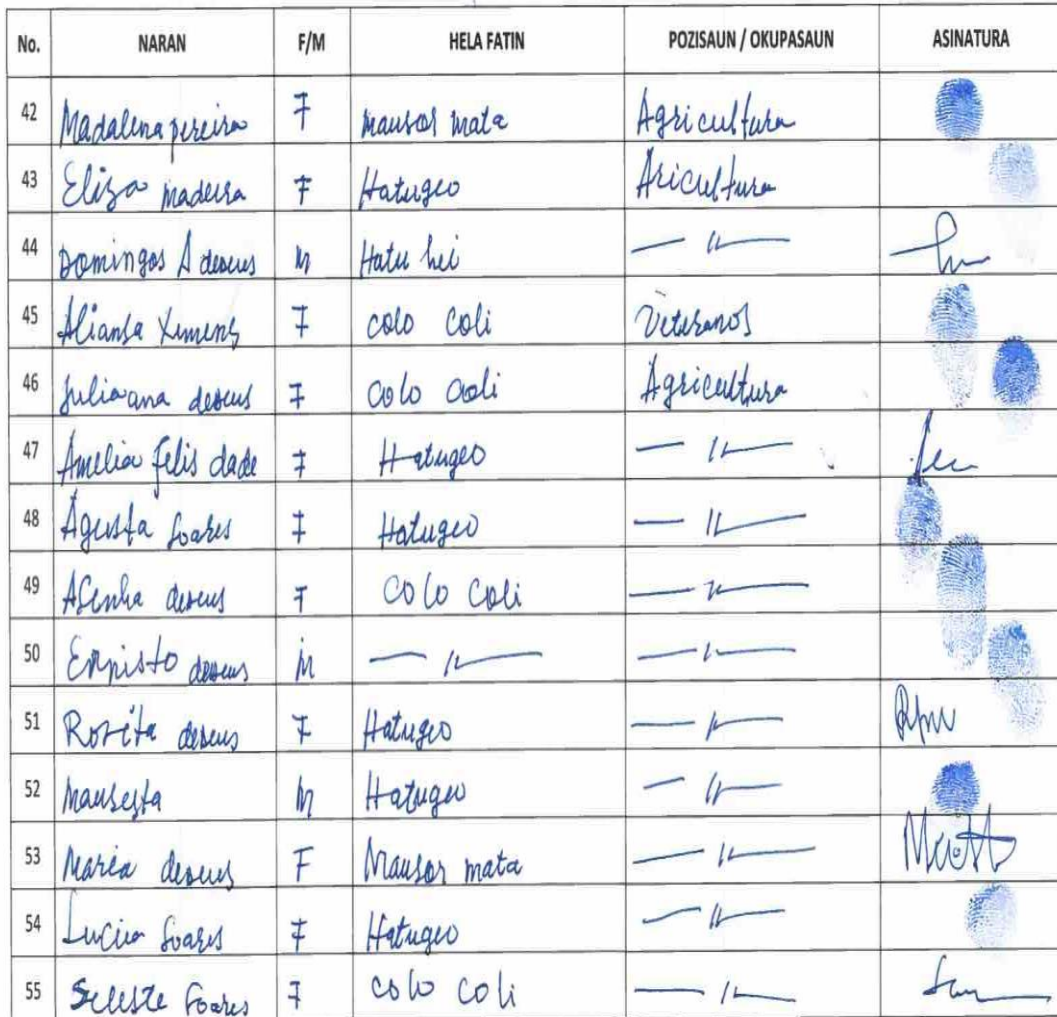 No. NARAN F/M HELA FATIN POZISAUN / OKUPASAUN ASINATURA
42 Madalena pereira F mausor mata Agricultura
43 Eliza madeira F Hatugeo Aricultura
44 Domingos A deseus M Hatu hei — 11 —
45 Aliansa Ximens F colo coli Veteranos
46 Juliaana deseus F colo coli Agricultura
47 Amelia felis dade F Hatugeo — 11 —
48 Agusta Soares F Hatugeo — 11 —
49 deseus F colo coli — 11 —
50 deseus M — 11 — — 11 —
51 Rosita deseus F Hatugeo — 11 —
52 M Hatugeo — 11 —
53 Maria deseus F Mausor mata — 11 —
54 Lucia Soares F Hatugeo — 11 —
55 Seleste Soares F colo coli — 11 —